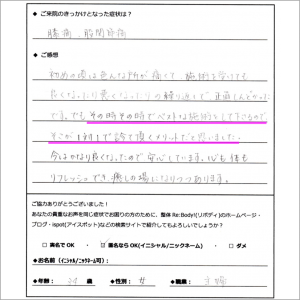 ◆ ご来院のきっかけとなった症状は？
腰痛、股関節痛
◆ ご感想
初めの頃は色んな所が痛くて、施術を受けても
良くなったり悪くなったりの繰り返しで、正直しんどかった
です。でもその時その時でベストな施術をして下さるので
そこが1対1で診て頂くメリットだと思いました。
今はかなり良くなったので安心しています。心も体も
リフレッシュでき、癒しの場になりつつあります。
ご協力ありがとうございました！
あなたの貴重なお声を同じ症状でお困りの方のために、整体 Re:Body!(リボディ)のホームページ・
ブログ・ispot(アイスポット)などの検索サイトで紹介してもよろしいでしょうか？
・ □ 実名で OK ・ ☑ 匿名なら OK(イニシャル/ニックネーム) ・ □ ダメ
◆お名前 (イニシャル/ニックネーム可)：
◆年齢： 歳 ◆性別： 女 ◆職業： 主婦